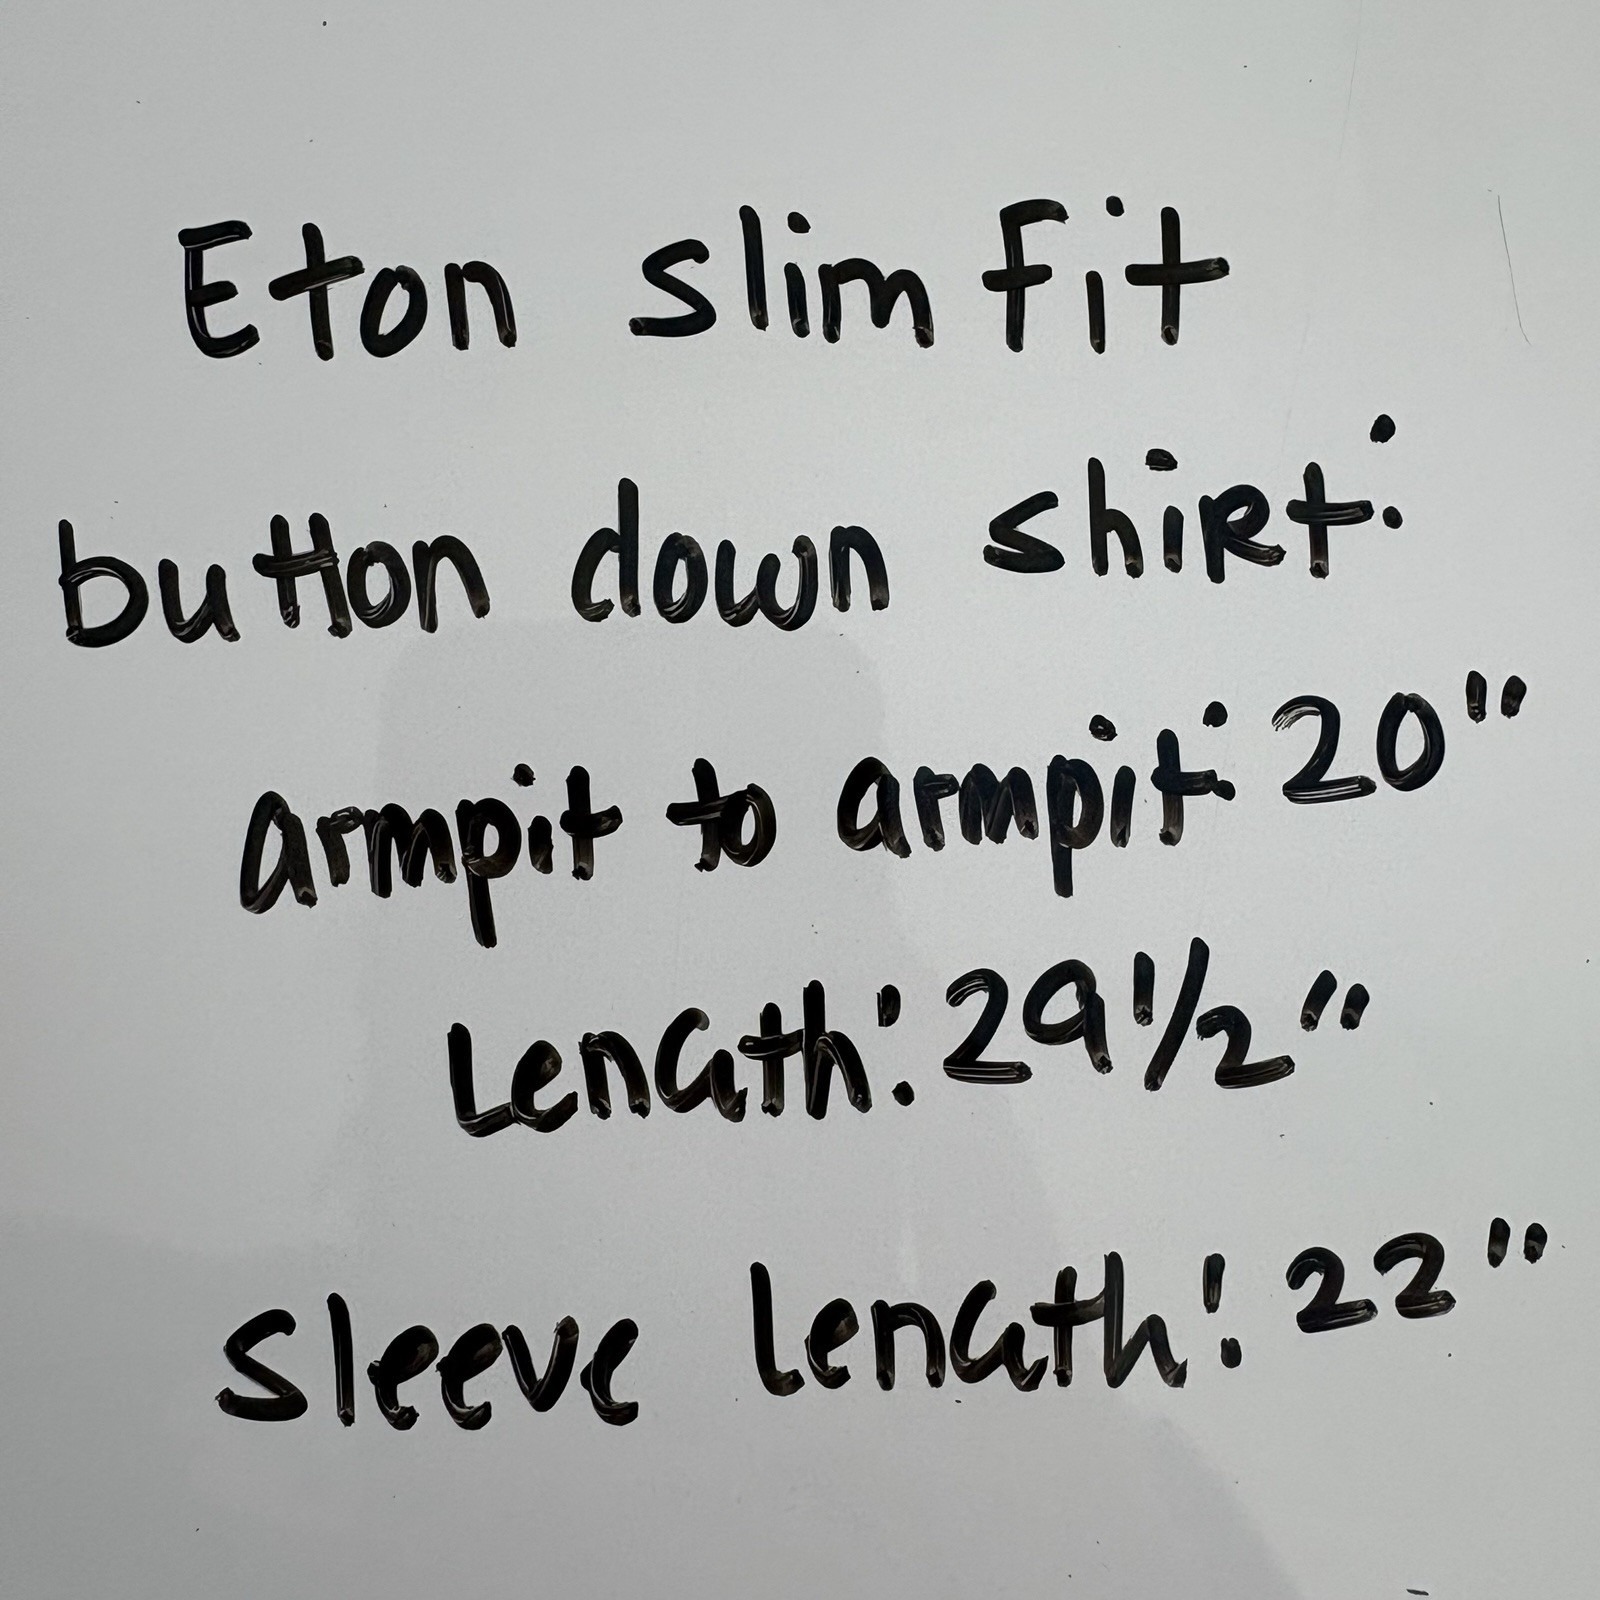 Eton slim fit
button down shirt:
armpit to armpit: 20"
Length: 29 1/2"
sleeve length: 22"